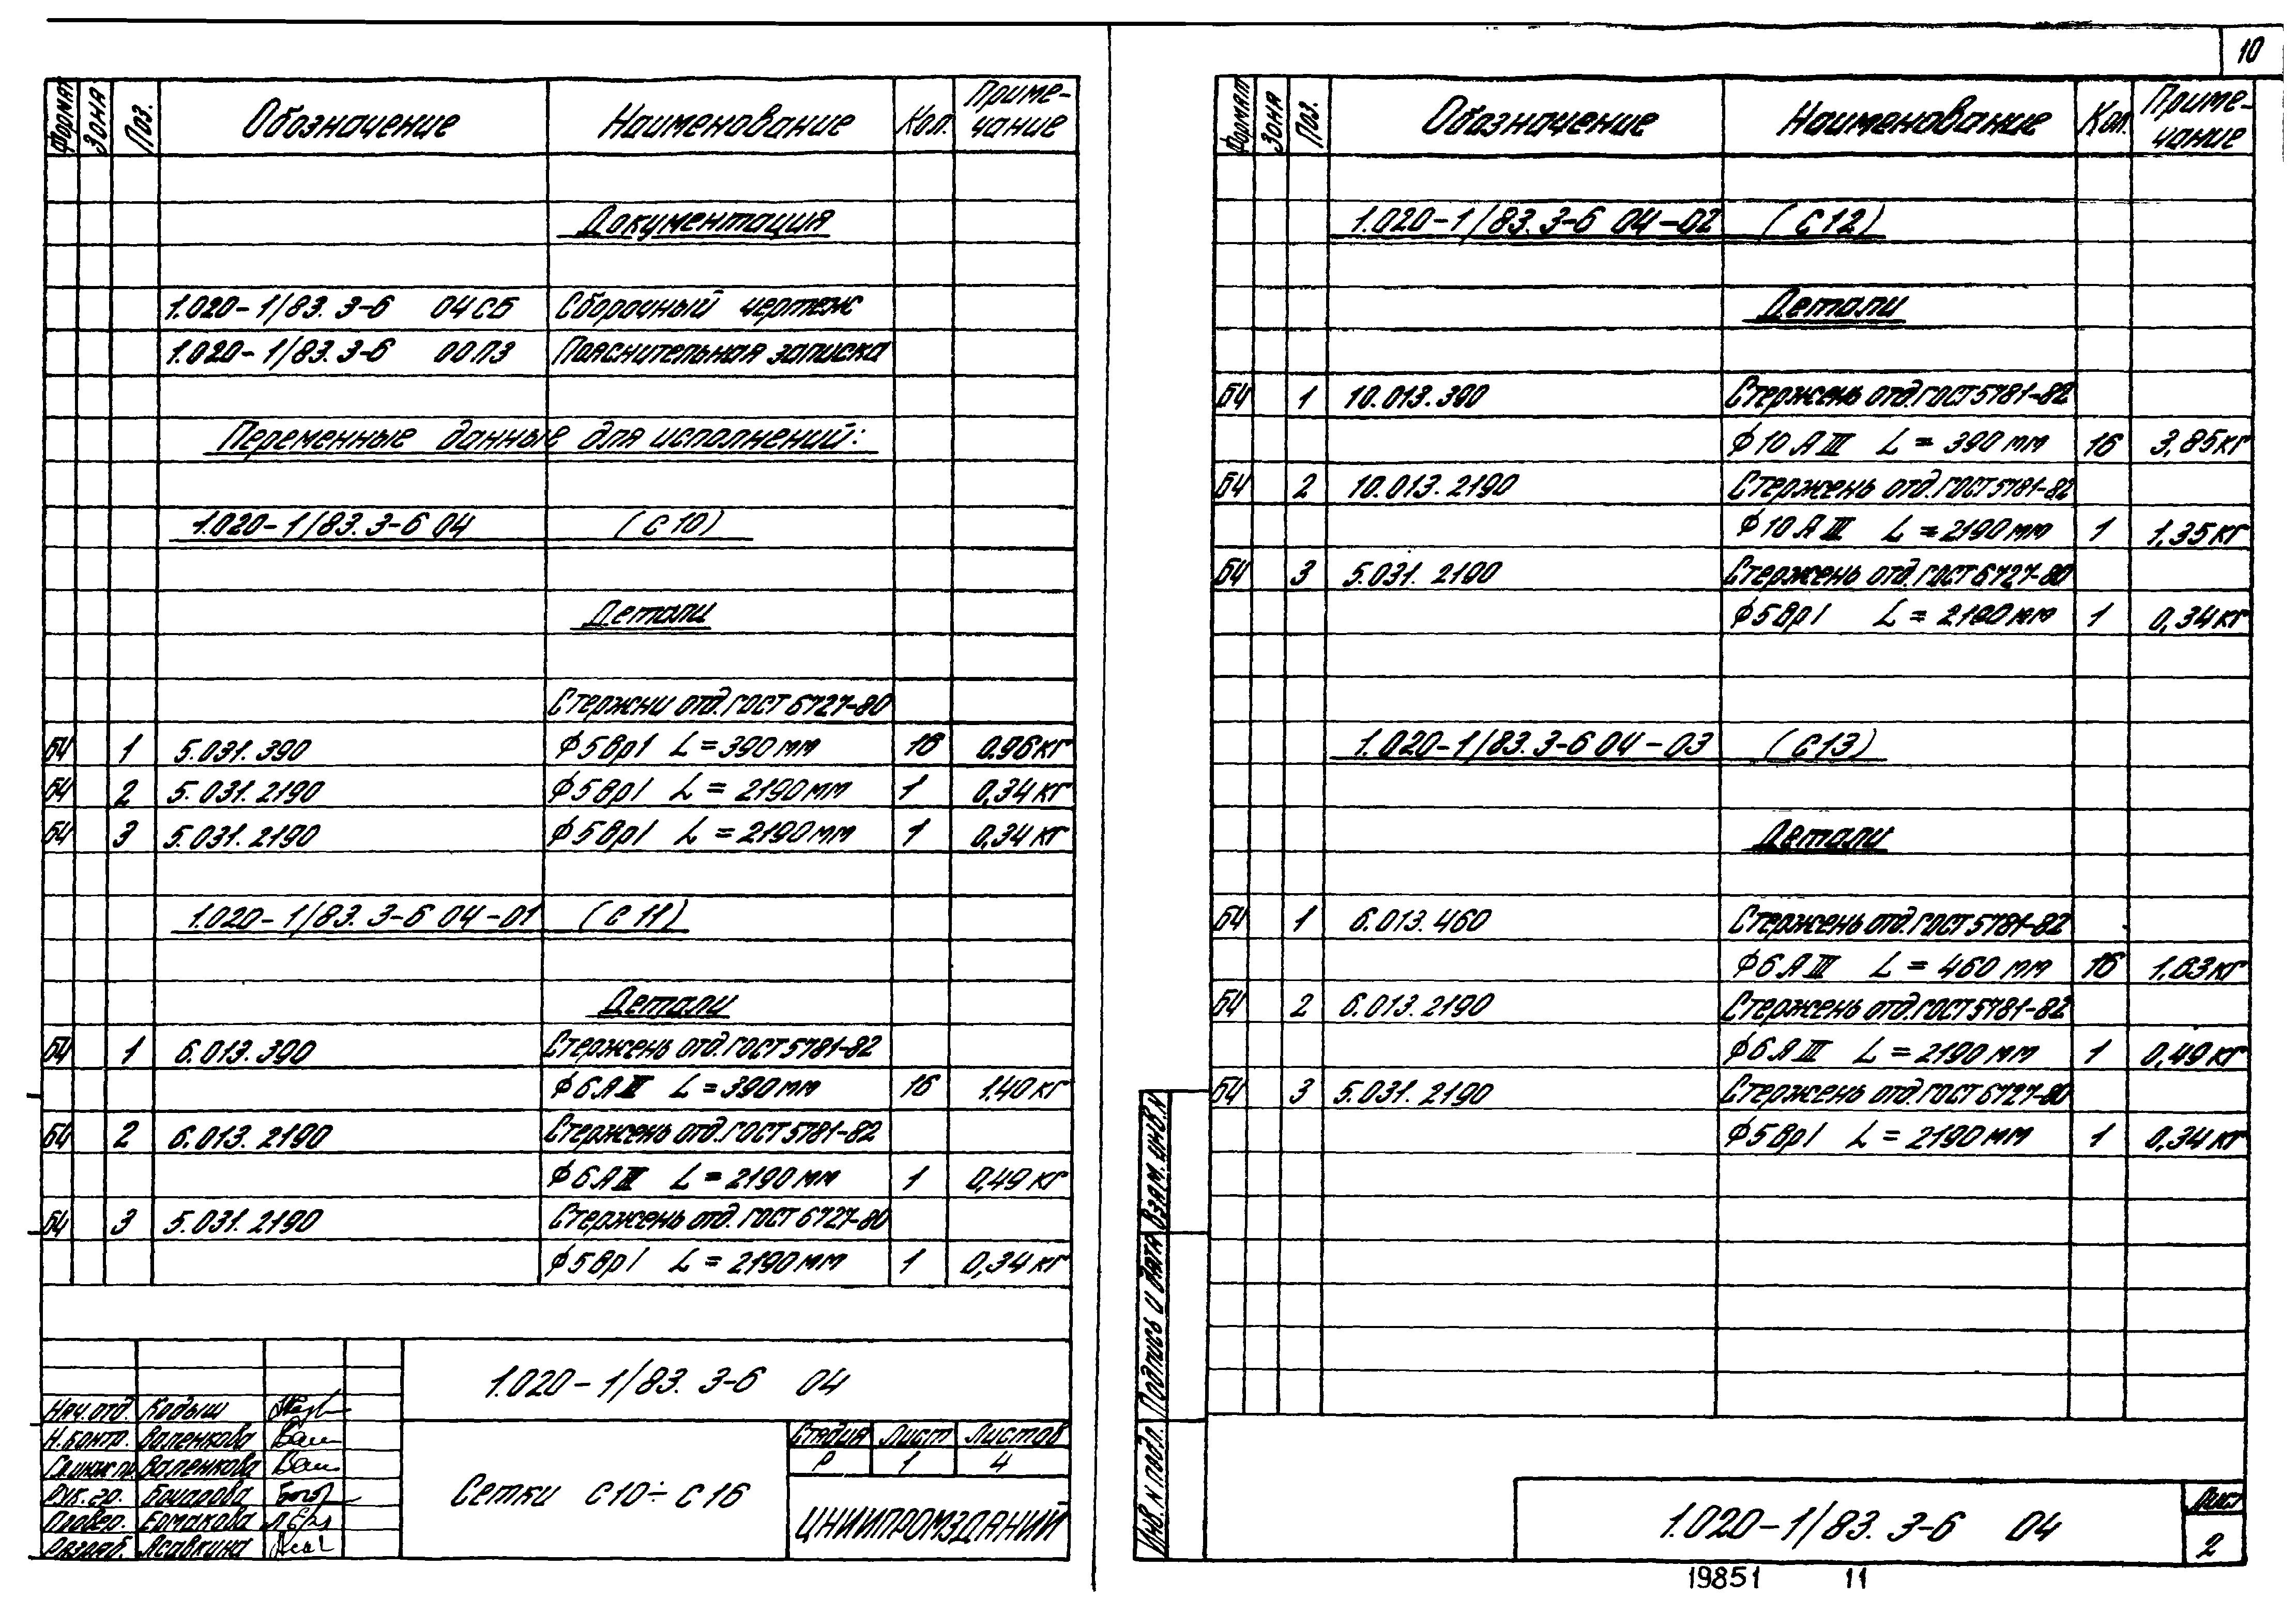 10
Формат Зона Поз. Обозначение Наименование Кол. Приме-чание
Документация
1.020-1/83. 3-6 04СБ Сборочный чертеж
1.020-1/83. 3-6 00ПЗ Пояснительная записка
Переменные данные для исполнений:
1.020-1/83. 3-6 04 (С10)
Детали
Стержни отд. ГОСТ 6727-80
БЧ 1 5.031.390 ϕ5Вр I L=390мм 16 0.96кг
БЧ 2 5.031.2190 ϕ5Вр I L=2190мм 1 0,34кг
БЧ 3 5.031.2190 ϕ5Вр I L=2190мм 1 0,34кг
1.020-1/83. 3-6 04-01 (С11)
Детали
БЧ 1 6.013.390 Стержень отд. ГОСТ 5781-82
ϕ6АIII L=390мм 16 1.40кг
БЧ 2 6.013.2190 Стержень отд. ГОСТ 5781-82
ϕ6АIII L=2190мм 1 0,49кг
БЧ 3 5.031.2190 Стержень отд. ГОСТ 6727-80
ϕ5Вр I L=2190мм 1 0,34кг
1.020-1/83. 3-6 04
Нач.отд. Кодыш
Н.контр. Валенкова
Гл.инж.пр. Валенкова
Рук.гр. Бочарова
Провер. Ермакова
Разраб. Асавкина
Сетки С10÷С16
Стадия Лист Листов
Р 1 4
ЦНИИПРОМЗДАНИЙ
Формат Зона Поз. Обозначение Наименование Кол. Приме-чание
1.020-1/83. 3-6 04-02 (С12)
Детали
БЧ 1 10.013.390 Стержень отд. ГОСТ 5781-82
ϕ10АIII L=390мм 16 3,85кг
БЧ 2 10.013.2190 Стержень отд. ГОСТ 5781-82
ϕ10АIII L=2190мм 1 1,35кг
БЧ 3 5.031.2190 Стержень отд. ГОСТ 6727-80
ϕ5Вр I L=2190мм 1 0,34кг
1.020-1/83. 3-6 04-03 (С13)
Детали
БЧ 1 6.013.460 Стержень отд. ГОСТ 5781-82
ϕ6АIII L=460мм 16 1.63кг
БЧ 2 6.013.2190 Стержень отд. ГОСТ 5781-82
ϕ6АIII L=2190мм 1 0,49кг
БЧ 3 5.031.2190 Стержень отд. ГОСТ 6727-80
ϕ5Вр I L=2190мм 1 0,34кг
Инв. N подл. Подпись и дата Взам. инв. N
1.020-1/83. 3-6 04
Лист
2
19851 11